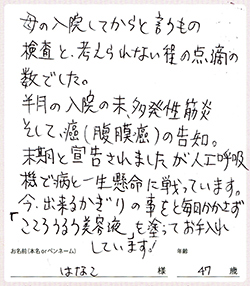 母の入院してからと言うもの
検査と、考えられない程の点滴の
数でした。
半月の入院の末、多発性筋炎
そして、癌(腹膜癌)の告知。
末期と宣告されましたが人工呼吸
機で病と一生懸命に戦っています。
今、出来るかぎりの事をと毎日かかさず
「こころうるうる美容液」を塗ってお手入れ
しています!
お名前(本名orペンネーム) 年齢
はなこ 様 47 歳